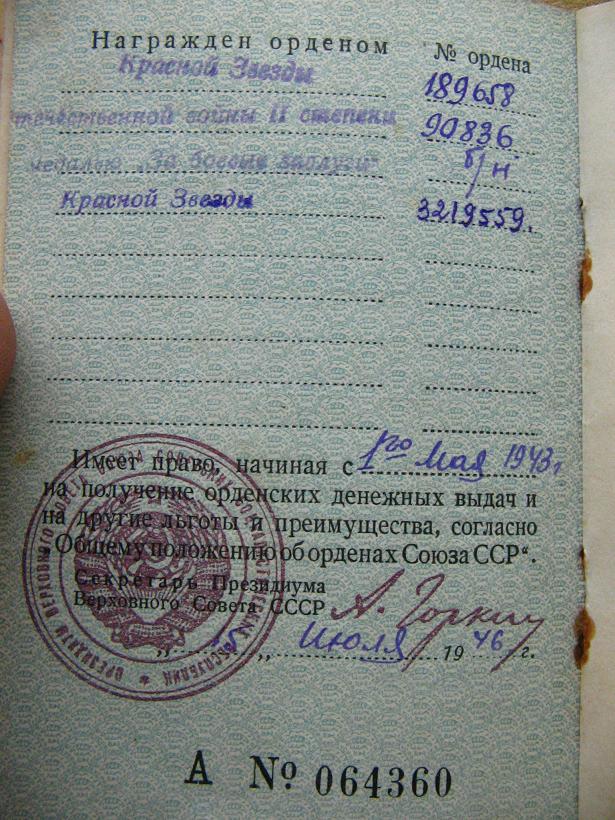 Награжден орденом № ордена
Красной Звезды 189658
Отечественной войны II степени 90836
медалью „За боевые заслуги“ б/н
Красной Звезды 3219559.
Имеет право, начиная с 1го Мая 1943 г
на получение орденских денежных выдач и
на другие льготы и преимущества, согласно
„Общему положению об орденах Союза ССР“.
Секретарь Президиума
Верховного Совета СССР А. Горкин
„15„ Июля 1946 г.
ПРЕЗИДИУМ ВЕРХОВНОГО СОВЕТА СОЮЗА СОВЕТСКИХ СОЦИАЛИСТИЧЕСКИХ РЕСПУБЛИК
А № 064360